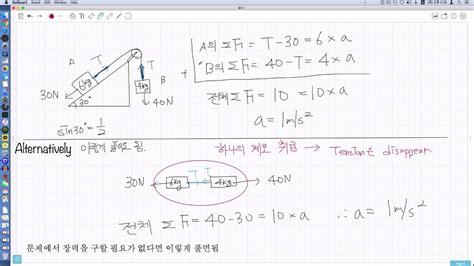 A의 ΣF₁ = T-30 = 6×a
B의 ΣF₁ = 40-T = 4×a
+
전체 ΣF₁ = 10 = 10×a
a = 1m/s²
A
T
T
B
6kg
4kg
30N
30°
40N
sin30° = 1/2
Alternatively 이렇게 풀어도 됨.
하나의 체로 취급 → Tension은 disappear
30N 6kg T T 4kg 40N
전체 ΣF₁ = 40-30 = 10×a ∴ a = 1m/s²
문제에서 장력을 구할 필요가 없다면 이렇게 풀면됨